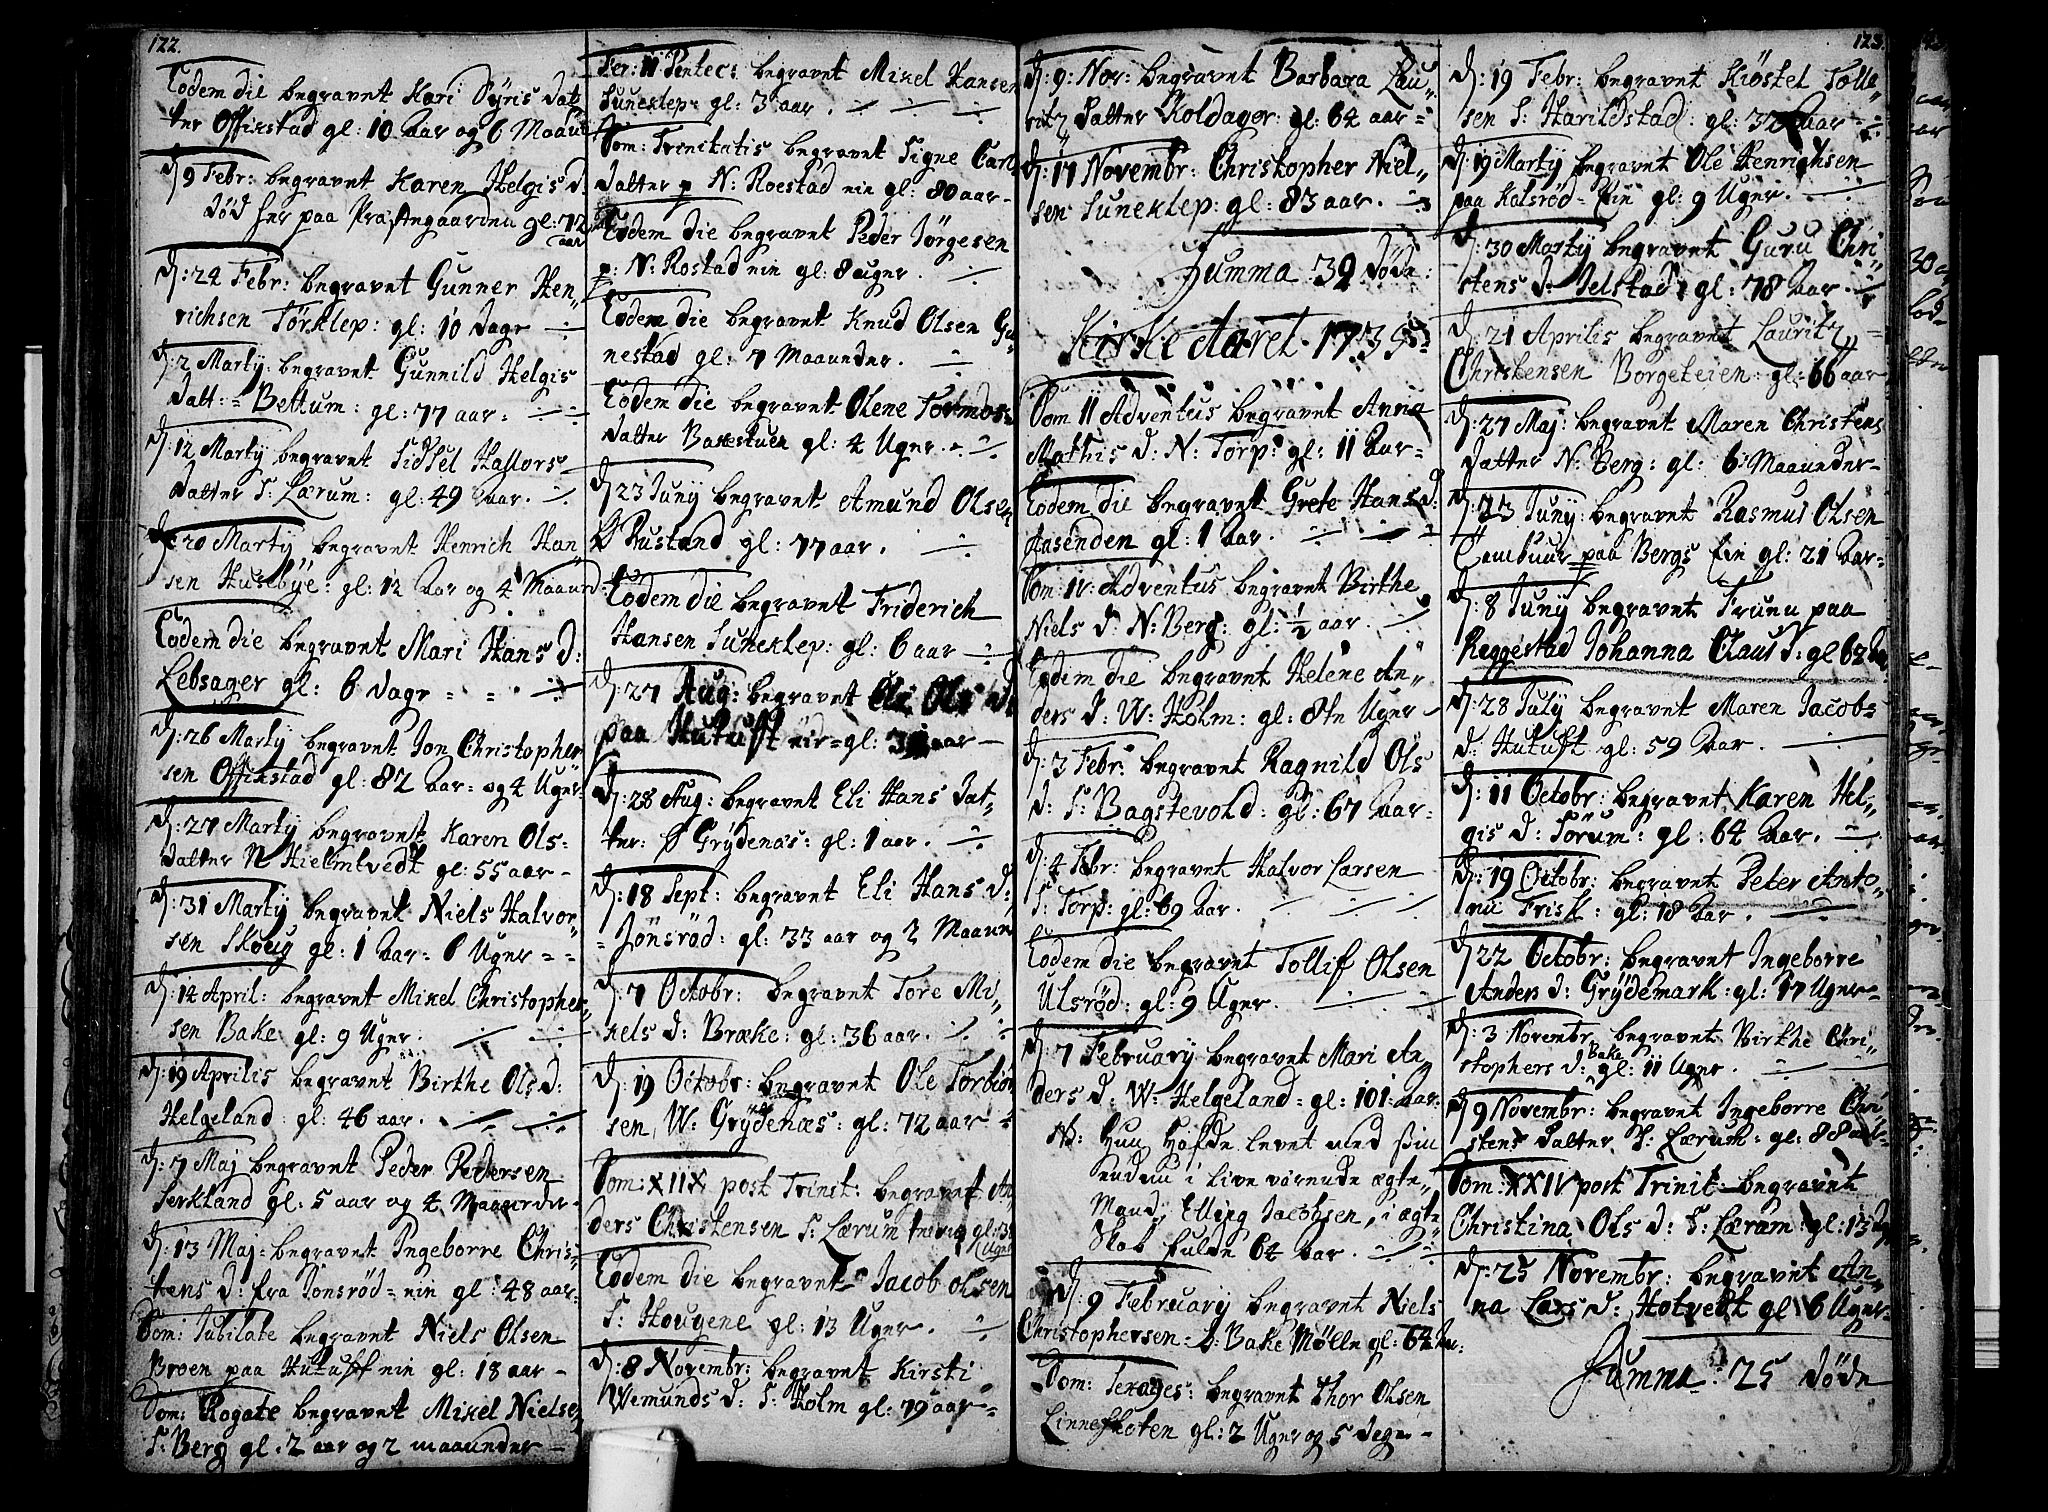 122.
Eodem die begravet Kari Syris Dat
ter Offikstad gl: 10 Aar og 6 Maan
d: 9 Febr: begravet Karen Helgis d.
død her paa Præstegaarden gl: 72
aar
d: 24 Febr: begravet Gunner Hen„
richsen Törklep: gl: 10 dage
d: 2 Martij: begravet Gunnild Helgis
Datt: = Bettum: gl: 77 aar:
d: 12 Martij begravet Sidsel Hallors
datter S: Lærum: gl: 49 Aar.
d: 20 Martij begravet Henrich Han„
sen Husebÿe: gl: 12 Aar og 4 Maaned
Eodem die begravet Mari Hans d:
Lebsager gl: 6 dage
d: 26 Martij begravet Jon Christopher
sen Offikstad gl: 82 Aar= og 4 Uger
d: 27 Martij begravet Karen Ols=
datter N Hielmtvedt gl: 55 aar
d: 31 Martij begravet Niels Halvor„
sen Skoug gl: 1 Aar= 6 Uger
d: 14 April: begravet Mikel Christopher
sen Bake gl: 9 Uger.
d: 19 Aprilis begravet Birthe Ols d:
Helgeland gl: 46 aar.
d: 7 Maj begravet Peder Pedersen
Serkland gl: 5 aar og 4 Maaneder
d: 13 Maj= begravet Ingeborre Chris„
tens d: fra Jonsrød= eie gl: 48 aar
Dom: Jubilate begravet Niels Olsen
Broen paa Hutuft eie gl: 18 aar
Dom: Rogate begravet Mikel Nielsen
S: Berg gl: 2 aar og 2 maaneder
Fer: II Pentec: begravet Mikel Hansen
Suneklep= gl: 3 aar.
Dom: Trinitatis begravet Signe Carls
datter p N: Roestad eie gl: 80 aar
Eodem die begravet Peder Jörgesen
p: N: Rostad eie gl: 8 uger.
Eodem die begravet Knud Olsen Gu„
nestad gl: 7 Maaneder.
Eodem die begravet Olene Tormos
datter Bakestuen gl: 4 Uger.
d: 23 Junij begravet Amund Olsen
Ø Rustand gl: 77 aar.
Eodem die begravet Friderich
Hansen Suneklep: gl: 6 aar
d: 27 Aug: begravet Ols d
paa Hutuft eie= gl: aar
d: 28 Aug: begravet Eli Hans Dat„
ter: Ø Grÿdenæs: gl: 1 aar.
d: 18 Sept: begravet Eli Hans d:
Jönsrød: gl: 33 aar og 2 Maaned
d: 7 Octobr: begravet Tore Mi„
kels d: Bræke: gl: 36 aar.
d: 19 Octobr: begravet Ole Torbiön
sen W: Grÿdenæs: gl: 72 aar
Dom: XIIX post Trinit: begravet An
ders Christensen S: Lærum gl: 3
Uger
Eodem die begravet Jacob Olsen
S: Hougene gl: 13 Uger.
d: 8 Novembr: begravet Kirsti
Wemunds d: S: Holm gl: 79 aar
123.
d: 9: Nov: begravet Barbara Lau„
ritz Datter Koldager: gl: 64 aar
d: 17 Novembr: Christopher Niel„
sen Suneklep: gl: 83 aar.
Summa 39 døde:
Kirke Aaret 1735
Dom II Adventus begravet Anna
Mathis d: N: Torp: gl: 11 Aar
Eodem die begravet Grete Hans d:
Aasenden gl: 1 Aar.
Dom: IV. Adventus begravet Birthe
Niels d: N: Berg: gl: ½ aar.
Eodem die begravet Helene An„
ders d: W: Holm: gl: 8te Uger
d: 3 Febr: begravet Ragnild Ols
d: S: Bagstevold: gl: 67 Aar
d: 4 Febr: begravet Halvor Larsen
S: Torp: gl: 69 Aar.
Eodem die begravet Tollif Olsen
Ulsrød: gl: 9 Uger.
d: 7 Februarij begravet Mari An„
ders d: W: Helgeland= gl: 101= Aar:
Nb: Hun hafde levet med sin
endnu i live værende ægte„
Mand, Elling Jacobsen, i ægte„
skab fulde 64 Aar.
d: 9 Februarij begravet Niels
Christophersen= Bake Mølle gl: 64 Aar:
Dom: Sexages: begravet Thor Olsen
Linneskoten gl: 2 Uger og 5 Dage
d: 19 Febr: begravet Kiöstel Tolle„
sen S: Harildstad: gl: Aar
d: 19 Martij begravet Ole Henrichsen
paa Kolsrød= Eie gl: 9 Uger.
d: 30 Martij begravet Guru Chri„
stens d: Jelstad: gl: 78 Aar
d: 21 Aprilis begravet Lauritz
Christensen Borgeteien: gl: 66 aar
d: 27 Maj: begravet Maren Christens
datter N: Berg: gl: 6 Maaneder
d: 23 Junij: begravet Rasmus Olsen
Tambuur paa Bergs Eie gl: 21 Aar
d: 8 Junij begravet Fruen paa
Reggestad Johanna Claus d: gl 62 Aar
d: 28 Julij begravet Maren Jacobs
d: Hutuft gl: 59 Aar.
d: 11 Octobr: begravet Karen Hel„
gis d: Sørum: gl: 64 Aar.
d: 19 Octobr: begravet Peter Anto„
ni Frisk: gl: 18 Aar.
d: 22 Octobr: begravet Ingeborre
Anders d: Grÿdemark: gl: 17 Uger
d: 3 Novembr begravet Birthe Chri„
stophers d: Bake gl: 11 Uger.
d: 9 Novembr: begravet Ingeborre Chri„
stens Datter S: Lærum= gl: 88 aar
Dom: XXIV post Trinit begravet
Christina Ols d: S: Lærum: gl: 13 dage
d: 25 Novembr: begravet An„
na Lars d: Hotvedt gl 6 Uger
Summa: 25 døde